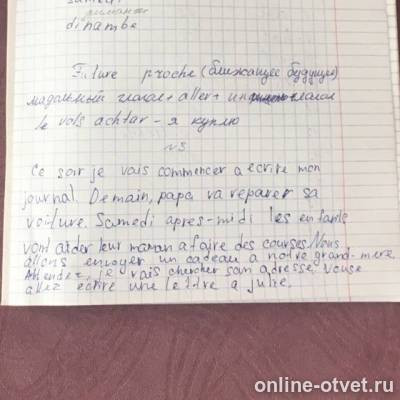 samedi
dinambe
Future proche (ближайщее будущее)
мадальный глагол + aller + ин глагол
le vols achtar - я куплю
N3
Ce soir je vais commencer a ecrire mon
journal. Demain, papa va reparer sa
voiture. Samedi apres-midi les enfants
vont aider leur maman a faire des courses. Nous
allons envoyer un cadeau a notre grand-mere.
Attendez, je vais chercher son adresse. Vouse
allez ecrire une lettre a julie.
online-otvet.ru